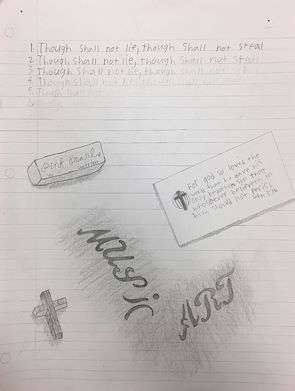 1. Though Shall not lie, though Shall not steal
2. Though Shall not lie, though Shall not steal
3. Though Shall not lie, though Shall not steal
4. Though Shall not lie, though Shall not
5. Though Shall not
6.
pink pearl
For god so loved the
world that he gave his
only begotten son that
whosoever believeth in
him should not perish
John 3:16
MUSIC
ART